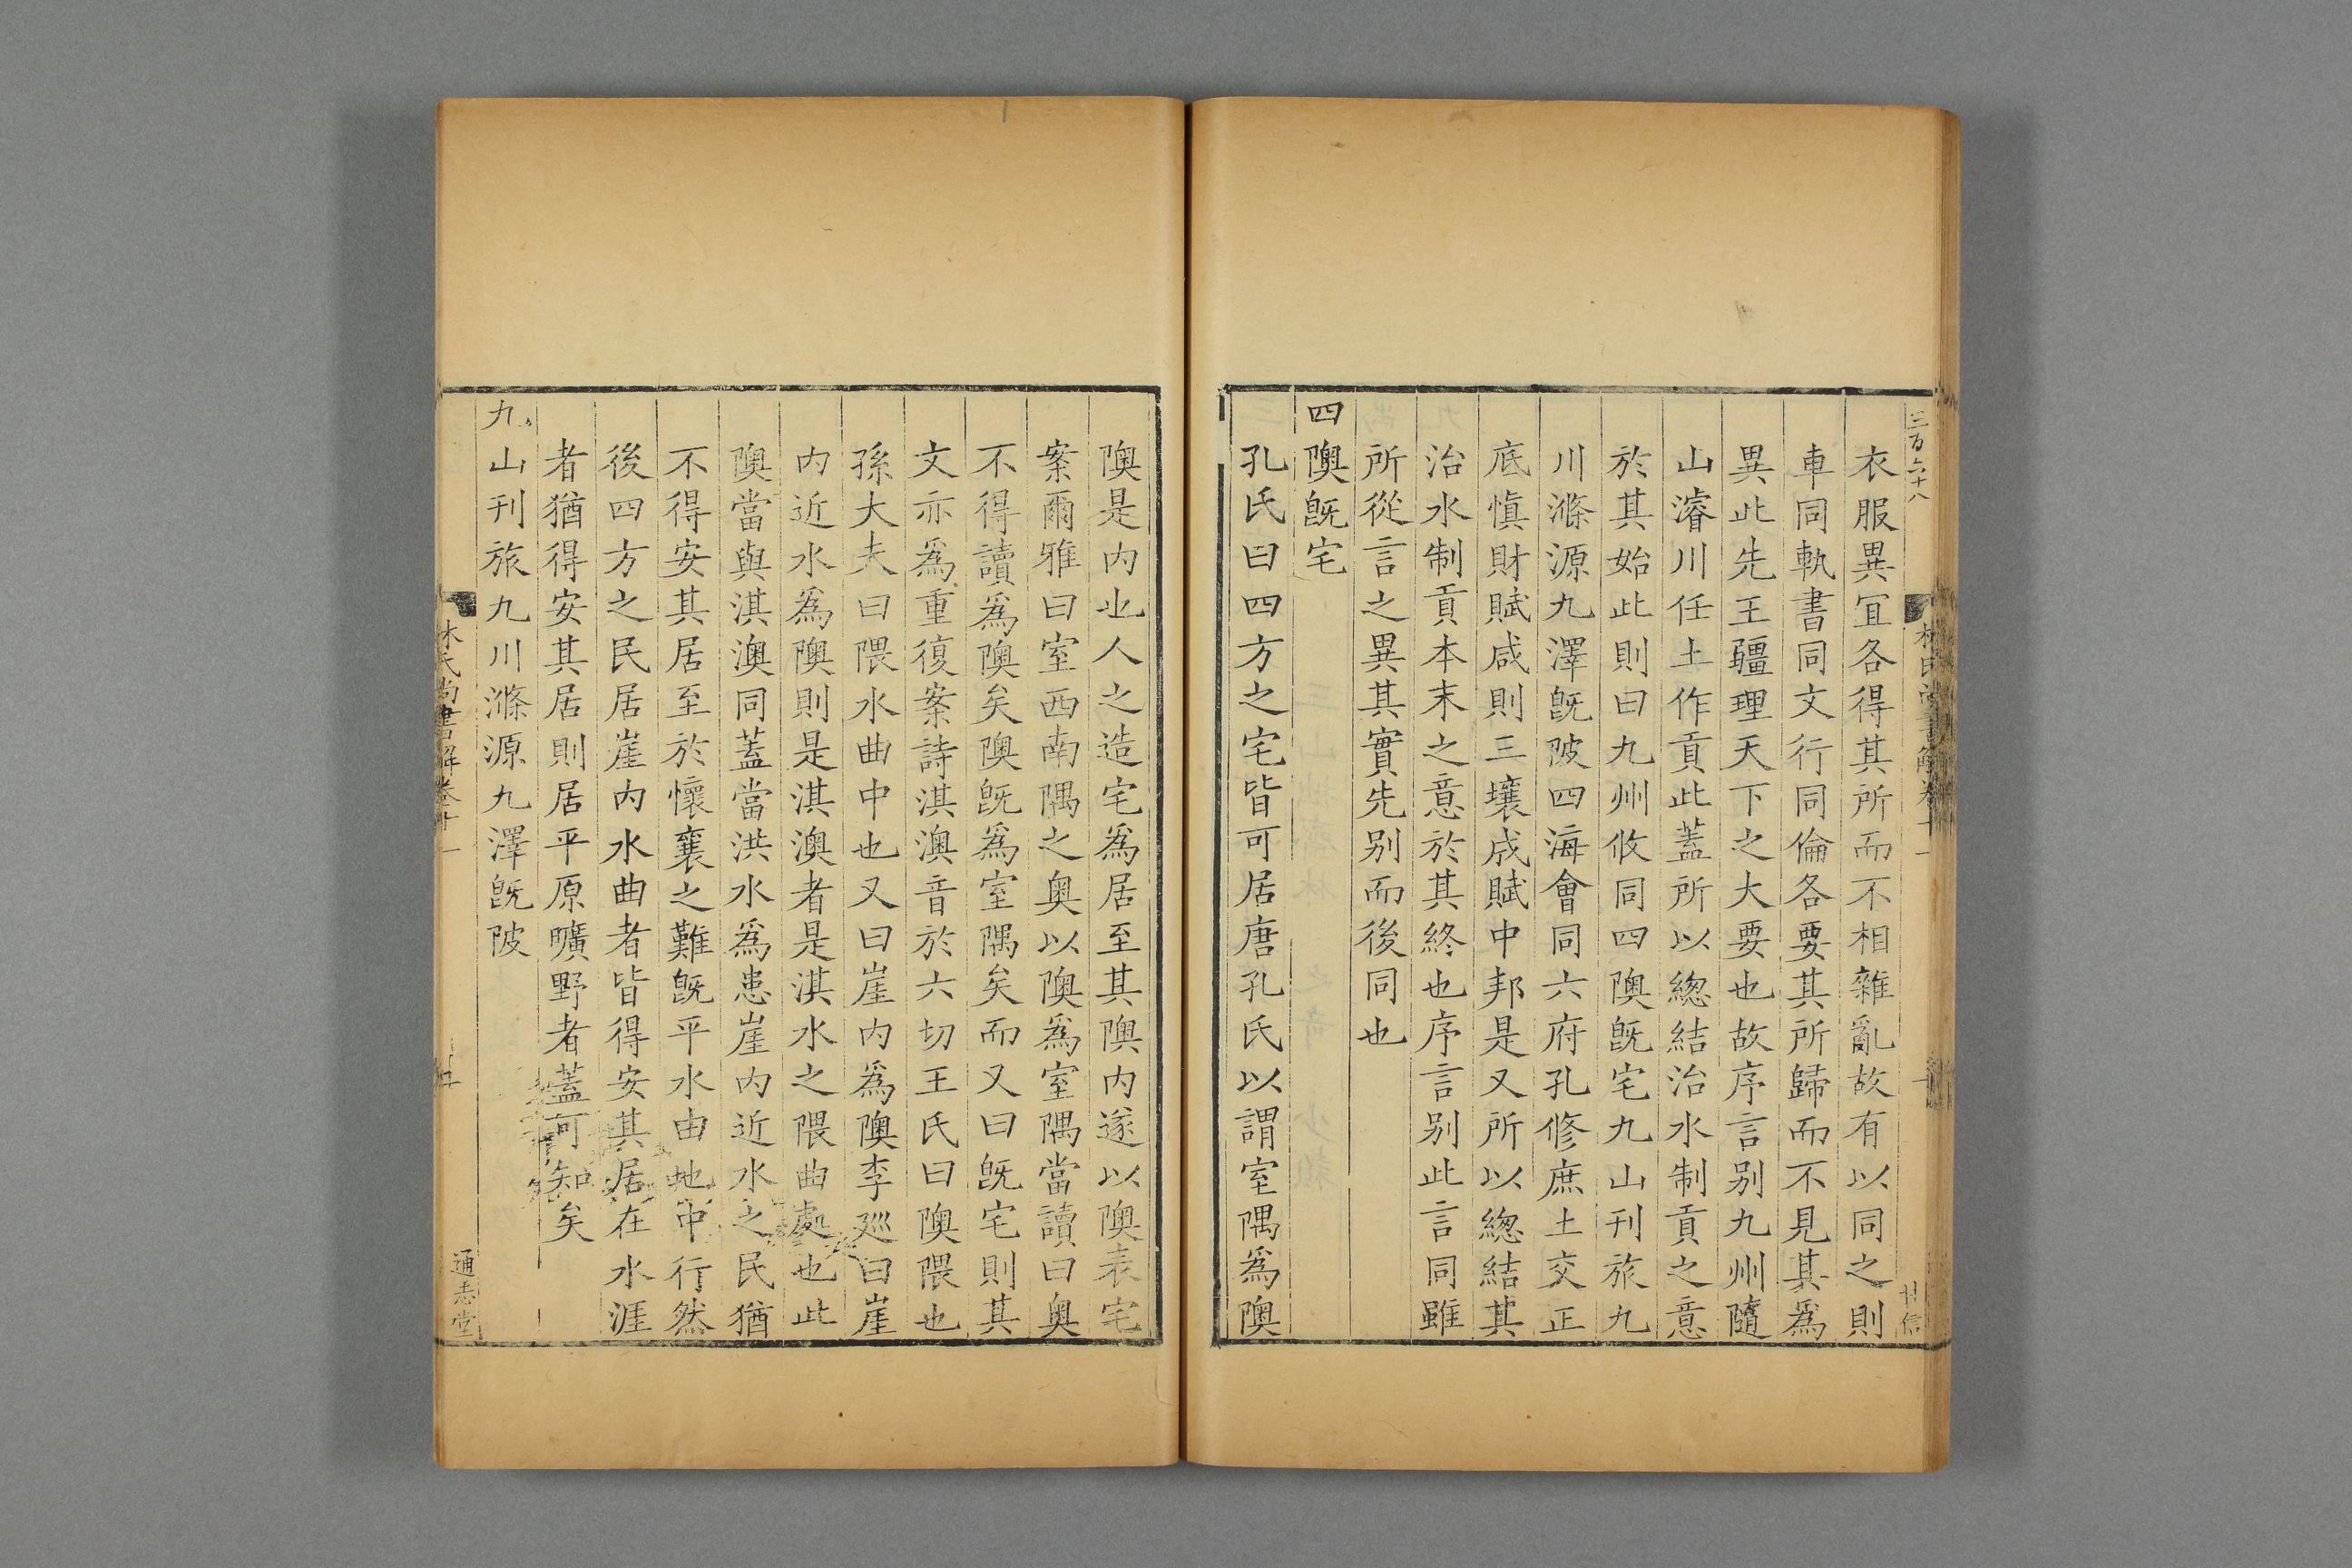 三百六十八
衣服異宜各得其所而不相雜亂故有以同之則
車同軌書同文行同倫各要其所歸而不見其爲
異此先王疆理天下之大要也故序言別九州隨
山濬川任土作貢此蓋所以緫結治水制貢之意
於其始此則曰九州攸同四隩旣宅九山刊旅九
川滌源九澤旣陂四海會同六府孔修庶土交正
底愼財賦咸則三壤成賦中邦是又所以緫結其
治水制貢本末之意於其終也序言別此言同雖
所從言之異其實先別而後同也
四隩旣宅
孔氏曰四方之宅皆可居唐孔氏以謂室隅爲隩
隩是内也人之造宅爲居至其隩内遂以隩表宅
案爾雅曰室西南隅之奥以隩爲室隅當讀曰奥
不得讀爲隩矣隩旣爲室隅矣而又曰旣宅則其
文亦爲重復案詩淇澳音於六切王氏曰隩隈也
孫大夫曰隈水曲中也又曰崖内爲隩李廵曰崖
内近水爲隩則是淇澳者是淇水之隈曲處也此
隩當與淇澳同蓋當洪水爲患崖内近水之民猶
不得安其居至於懷襄之難旣平水由地中行然
後四方之民居崖内水曲者皆得安其居在水涯
者猶得安其居則居平原曠野者蓋可知矣
九山刊旅九川滌源九澤旣陂
林氏尚書解卷十一
通志堂